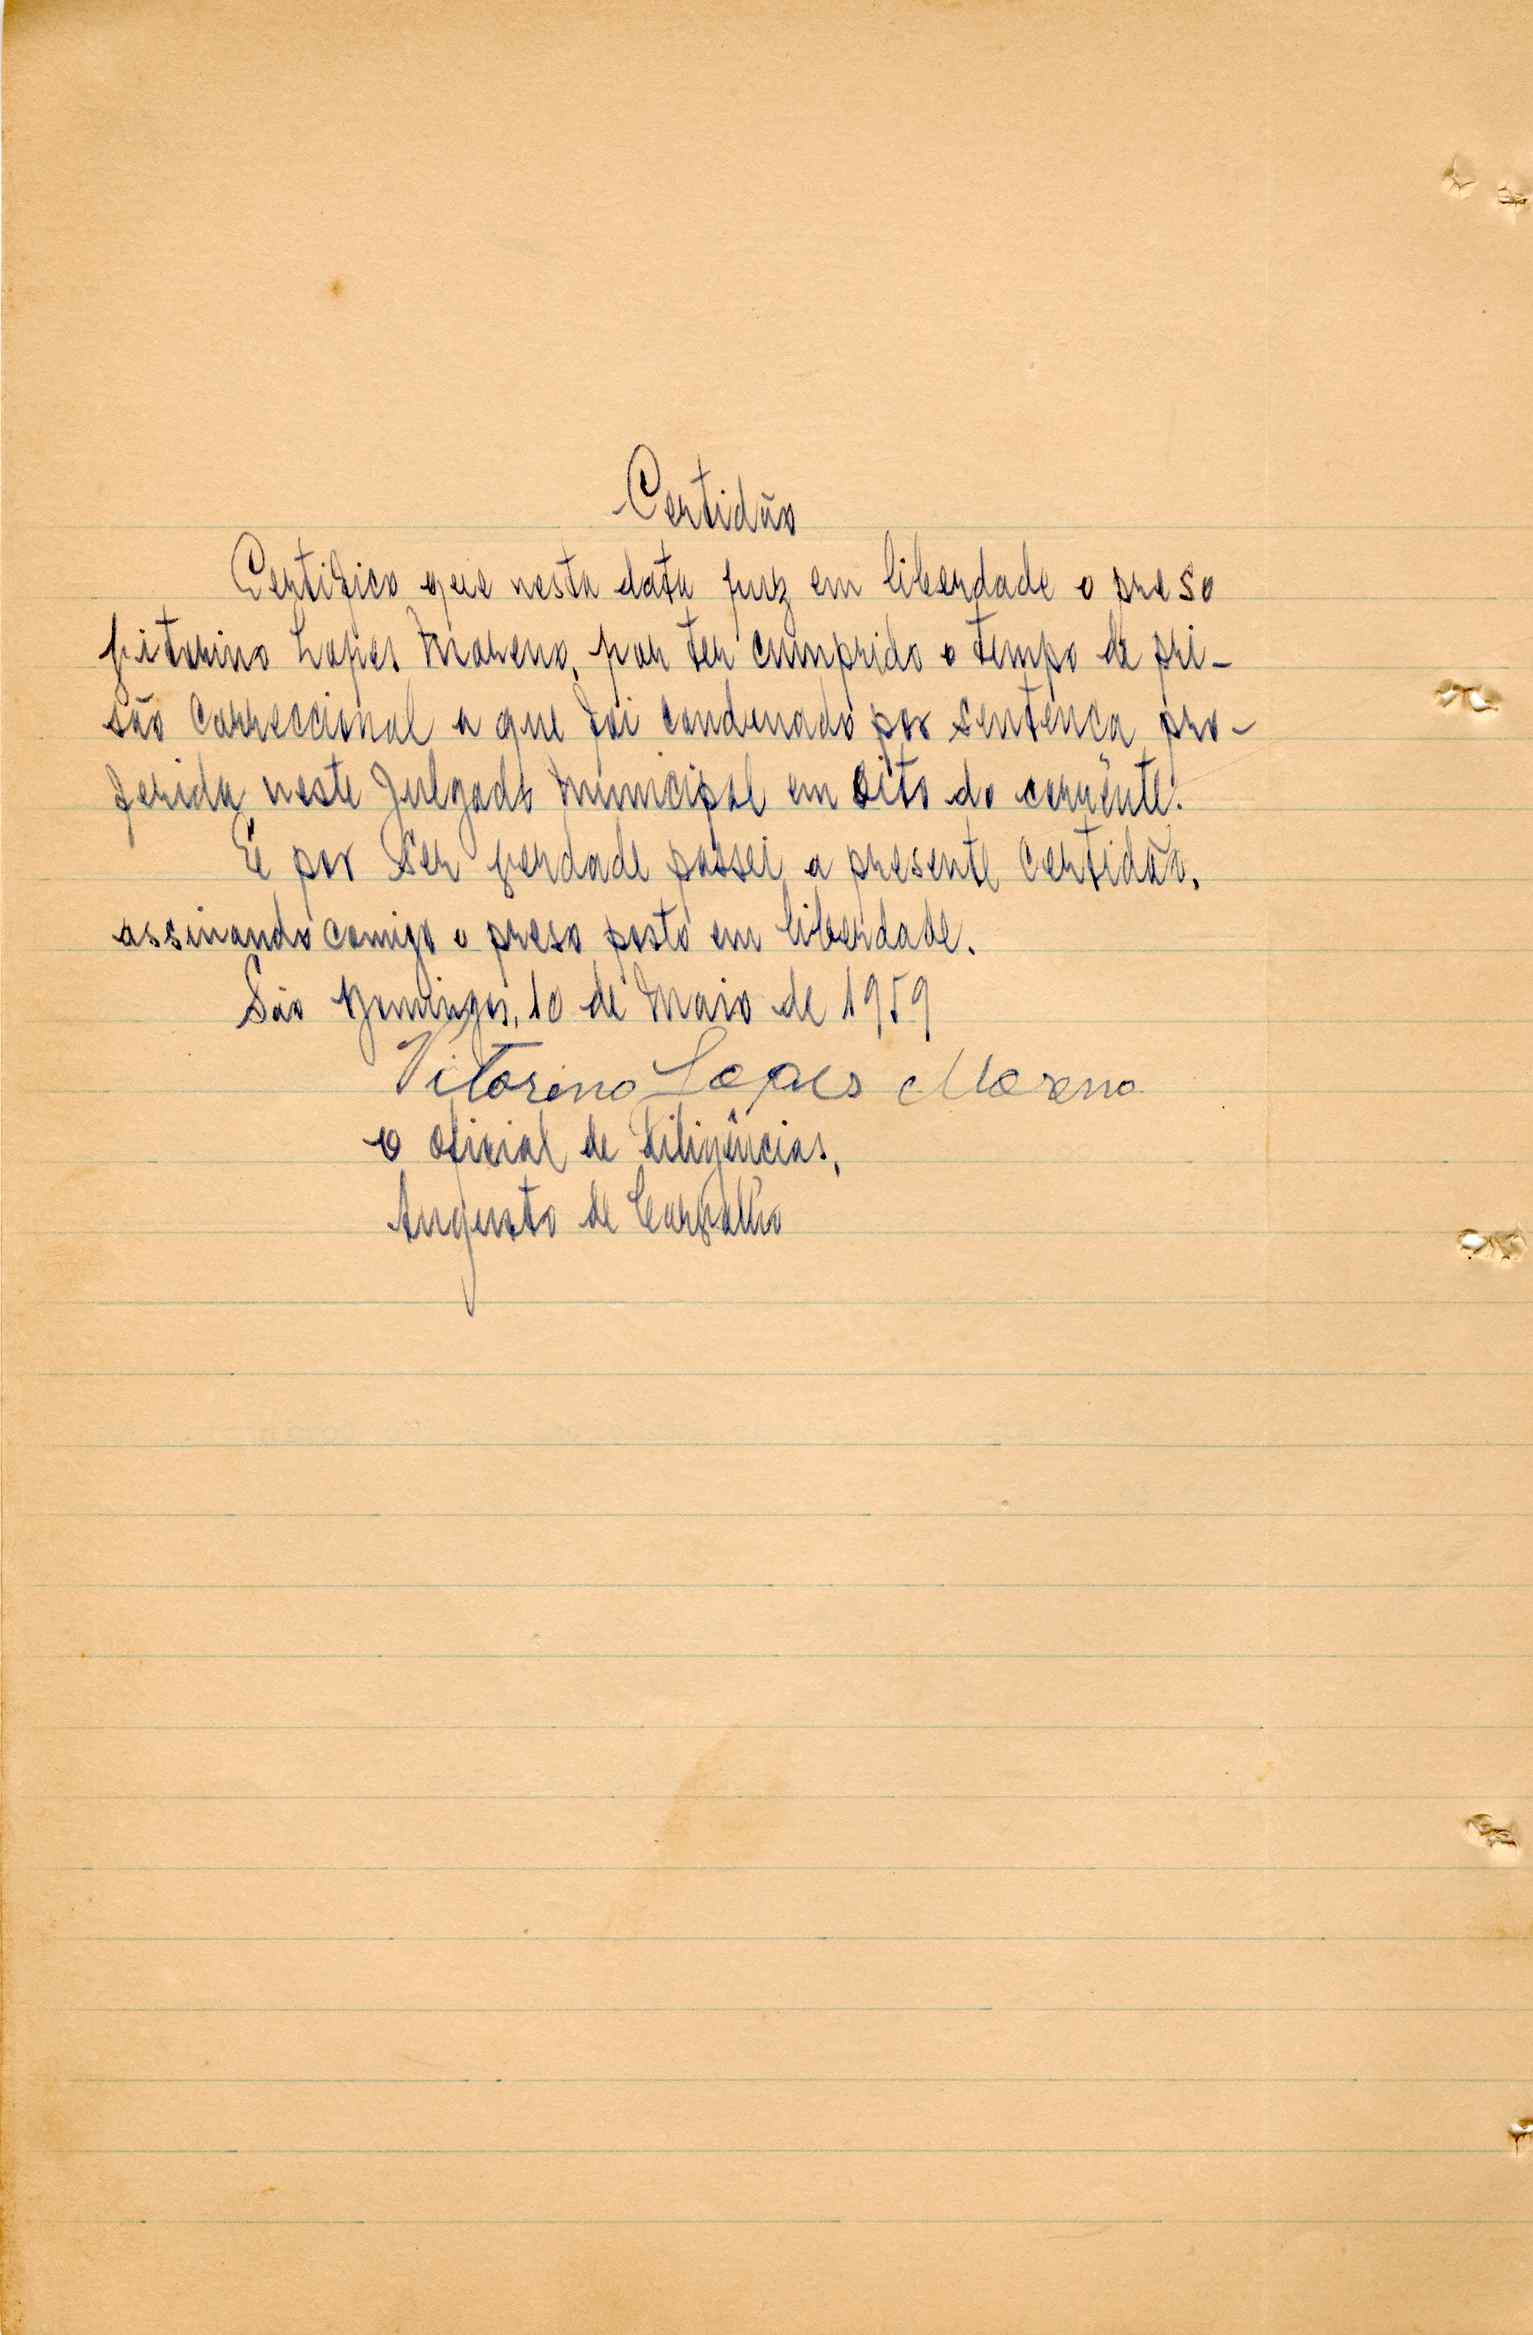 Certidão
Certifico que nesta data puz em liberdade o preso
Vitorino Lopes Moreno, por ter cumprido o tempo de pri-
são correccional a que foi condenado por sentença pro-
ferida neste Julgado Municipal em oito do corrente.
E por ser verdade passei a presente certidão,
assinando comigo o preso posto em liberdade.
São Domingos, 10 de Maio de 1959
Vitorino Lopes Moreno
O Oficial de Diligências,
Augusto de Carvalho